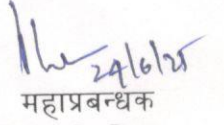 24/6/25
महाप्रबन्धक